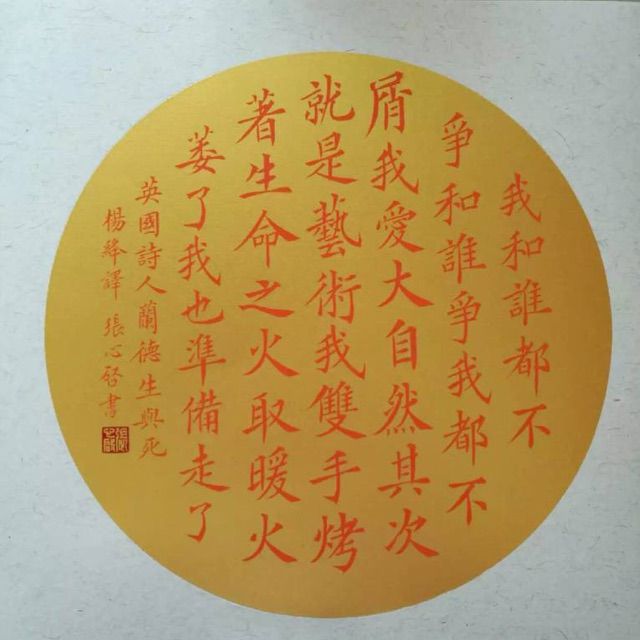 我和誰都不
爭和誰爭我都不
屑我愛大自然其次
就是藝術我雙手烤
著生命之火取暖火
萎了我也準備走了
英國詩人蘭德生與死
楊絳譯 張心啓書